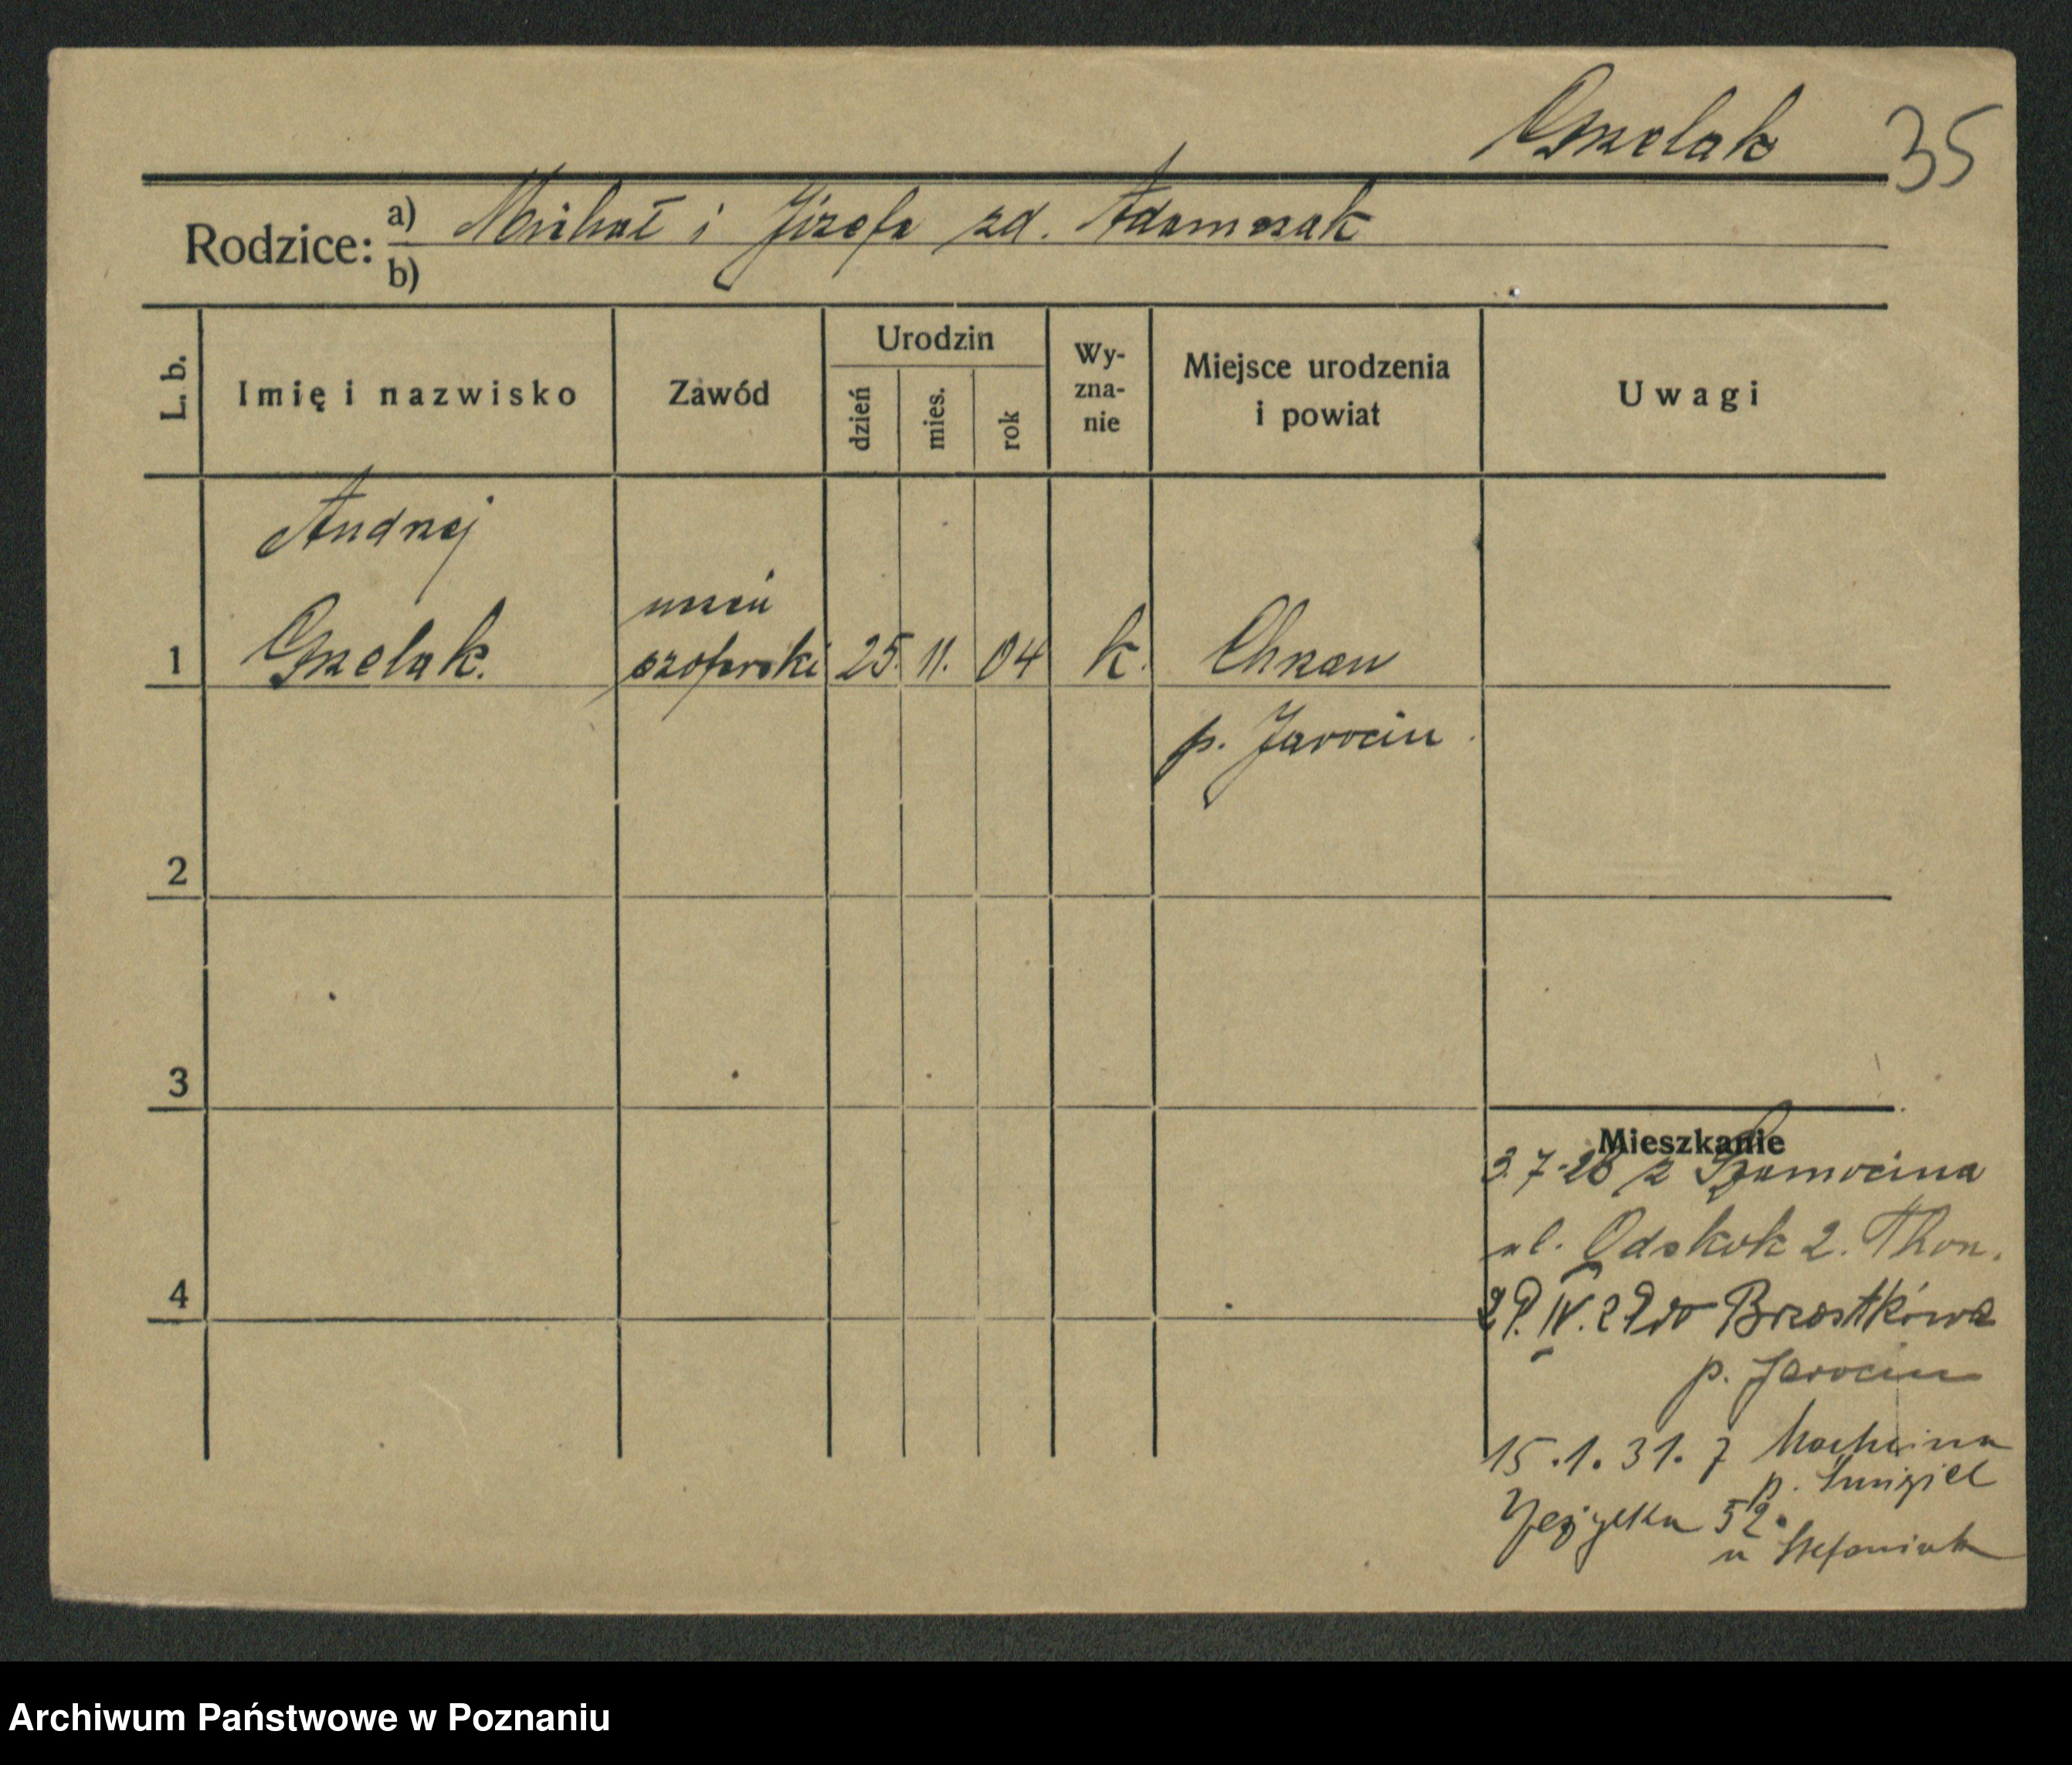 Grzelak 35
Rodzice: a) Michał i Józefa zd. Adamczak
b)
L. b.
Imię i nazwisko
Zawód
Urodzin
dzień
mies.
rok
Wy-
zna-
nie
Miejsce urodzenia
i powiat
Uwagi
Andrzej
uczeń
1 Grzelak. szoferski 25. 11. 04 k. Chrzan
p. Jarocin
2
3
4
Mieszkanie
3.7.28 z Szamocina
ul. Odskok 2. Thom.
29.IV.29 do Brzostkówa
p. Jarocin
15.1.31. z
p. Śmigiel
52.
u Stefaniak
Archiwum Państwowe w Poznaniu